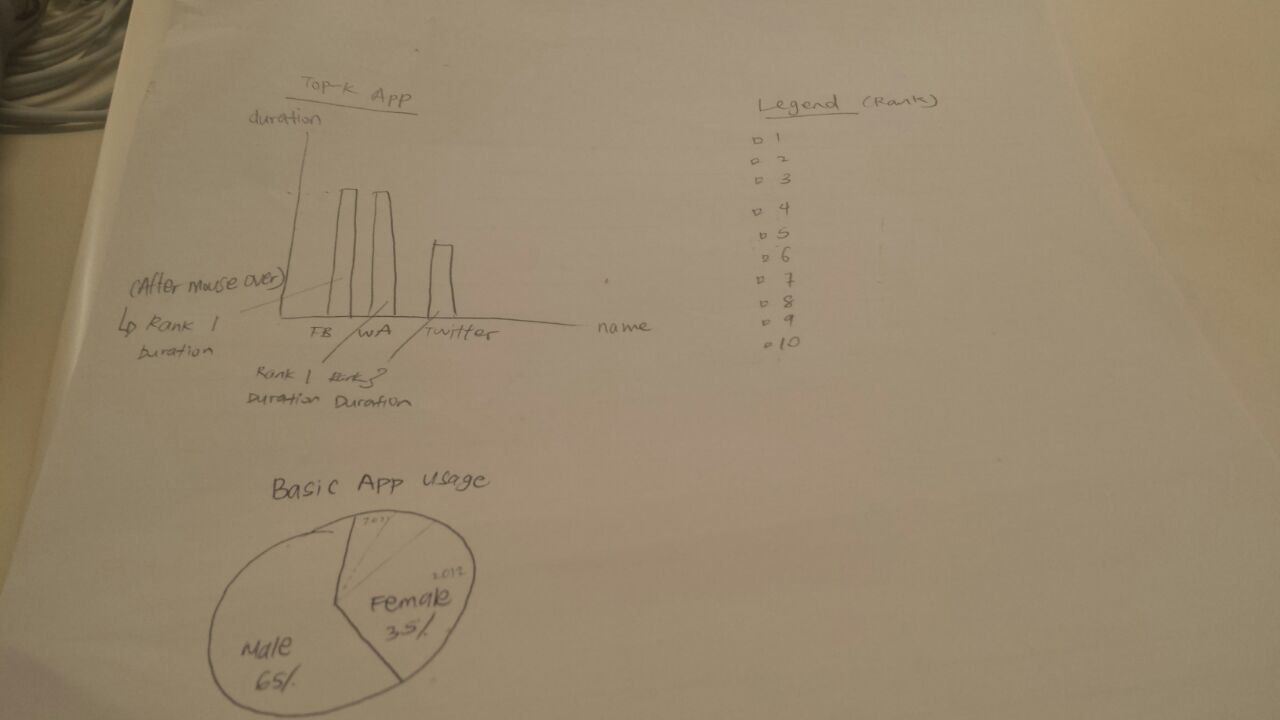 Top-K App
duration
(After mouse over)
↳ Rank 1
Duration
FB WA Twitter
name
Rank 1 Rank 3
Duration Duration
Legend (Rank)
1
2
3
4
5
6
7
8
9
10
Basic App Usage
Female
35%
Male
65%